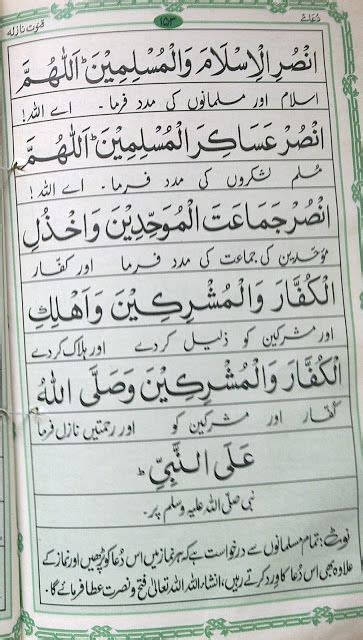 دعائے ۱۵۳ قنوت نازلہ
انْصُرِ الْاِسْلَامَ وَالْمُسْلِمِيْنَ ؕ اَللّٰهُمَّ
اسلام اور مسلمانوں کی مدد فرما ۔ اے اللہ!
انْصُرْ عَسَاكِرَ الْمُسْلِمِيْنَ ؕ اَللّٰهُمَّ
مسلم لشکروں کی مدد فرما ۔ اے اللہ!
انْصُرْ جَمَاعَتَ الْمُوَحِّدِيْنَ وَاخْذُلِ
موحدین کی جماعت کی مدد فرما اور کفار
الْكُفَّارَ وَالْمُشْرِكِيْنَ وَاَهْلِكِ
اور مشرکین کو ذلیل کردے اور ہلاک کردے
الْكُفَّارَ وَالْمُشْرِكِيْنَ وَصَلَّى اللّٰهُ
کفار اور مشرکین کو اور رحمتیں نازل فرما
عَلَى النَّبِيِّ ؕ
نبی صلی اللہ علیہ وسلم پر۔
نوٹ: تمام مسلمانوں سے درخواست ہے کہ ہر نماز میں اس دُعا کو پڑھیں اور نماز کے
علاوہ بھی اس دُعا کا ورد کرتے رہیں، انشاء اللہ اللہ تعالیٰ فتح و نصرت عطا فرمائے گا۔